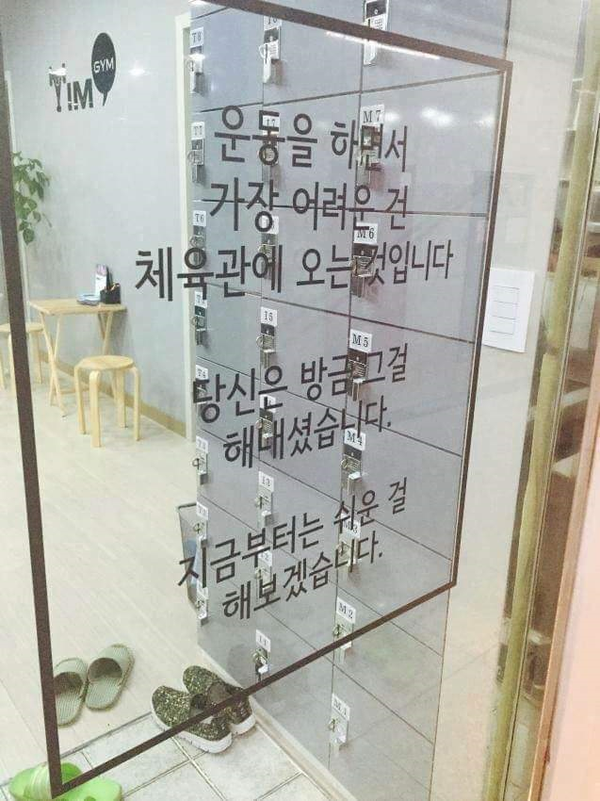 TIM GYM
운동을 하면서
가장 어려운 건
체육관에 오는 것입니다
당신은 방금그걸
해내셨습니다.
지금부터는 쉬운 걸
해보겠습니다.
T8
T7
17
M7
T6
M6
15
M5
M4
13
M2
11
M1